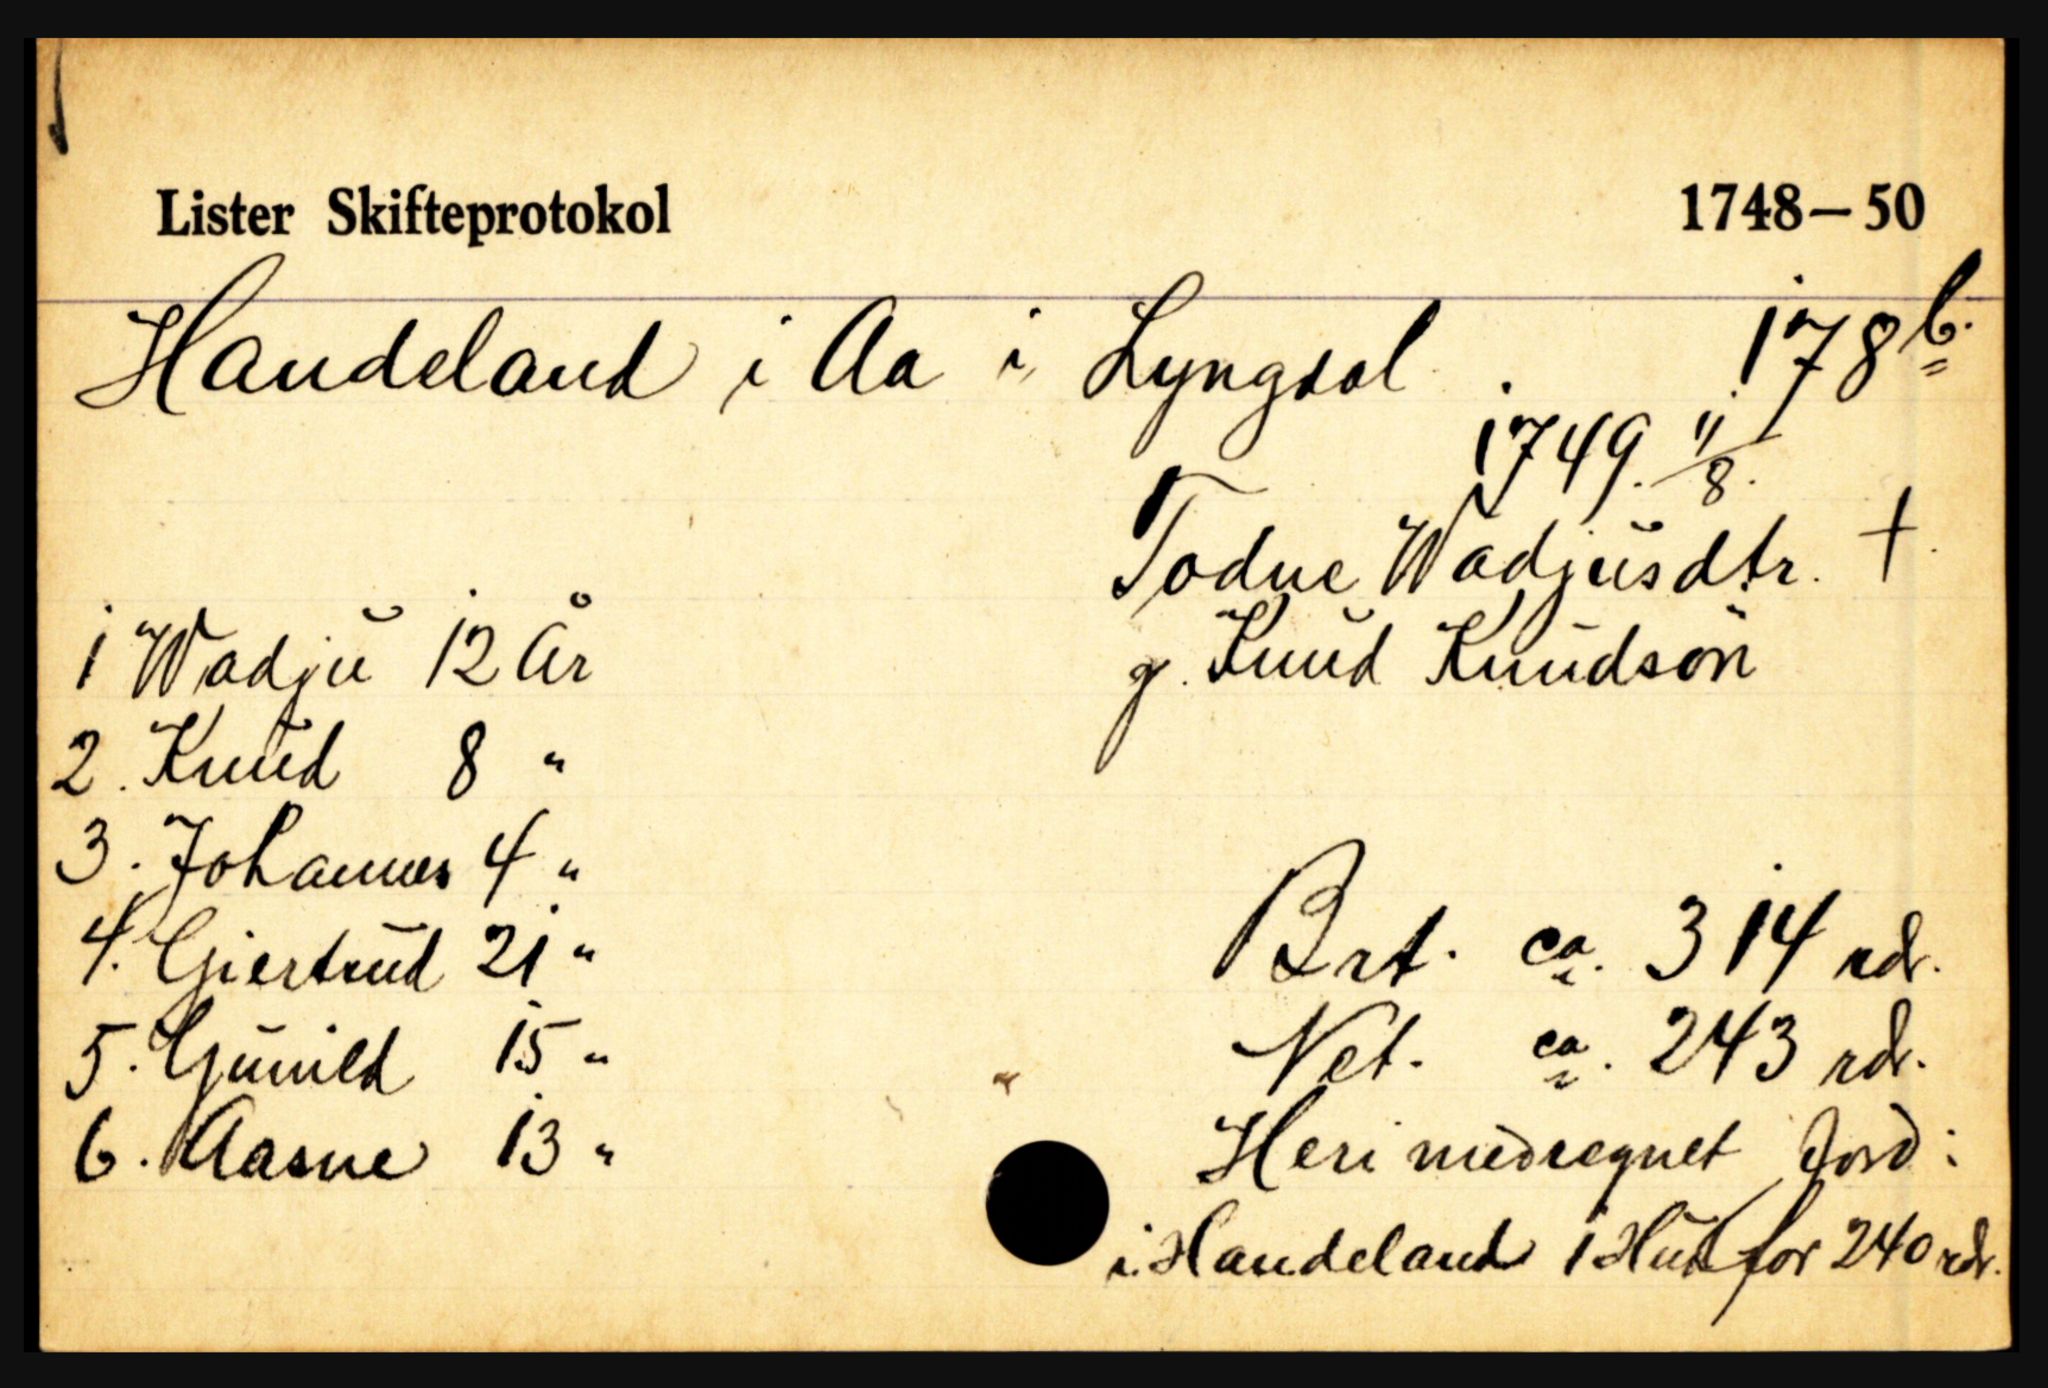 Lister Skifteprotokol 1748-50
Handeland i Aa i Lyngdal. 178 b.
1749. 11/8.
Todne Wadjusdtr. †.
g. Knud Knudson
1 Wadju 12 År
2. Knud 8 "
3. Johannes 4 "
4. Giertrud 21 "
5. Gunild 15 "
6. Aasne 13 "
Brt. ca. 314 rdr.
Net. ca. 243 rdr.
Heri medregnet Jord:
i Handeland 1 Hud for 240 rdr.